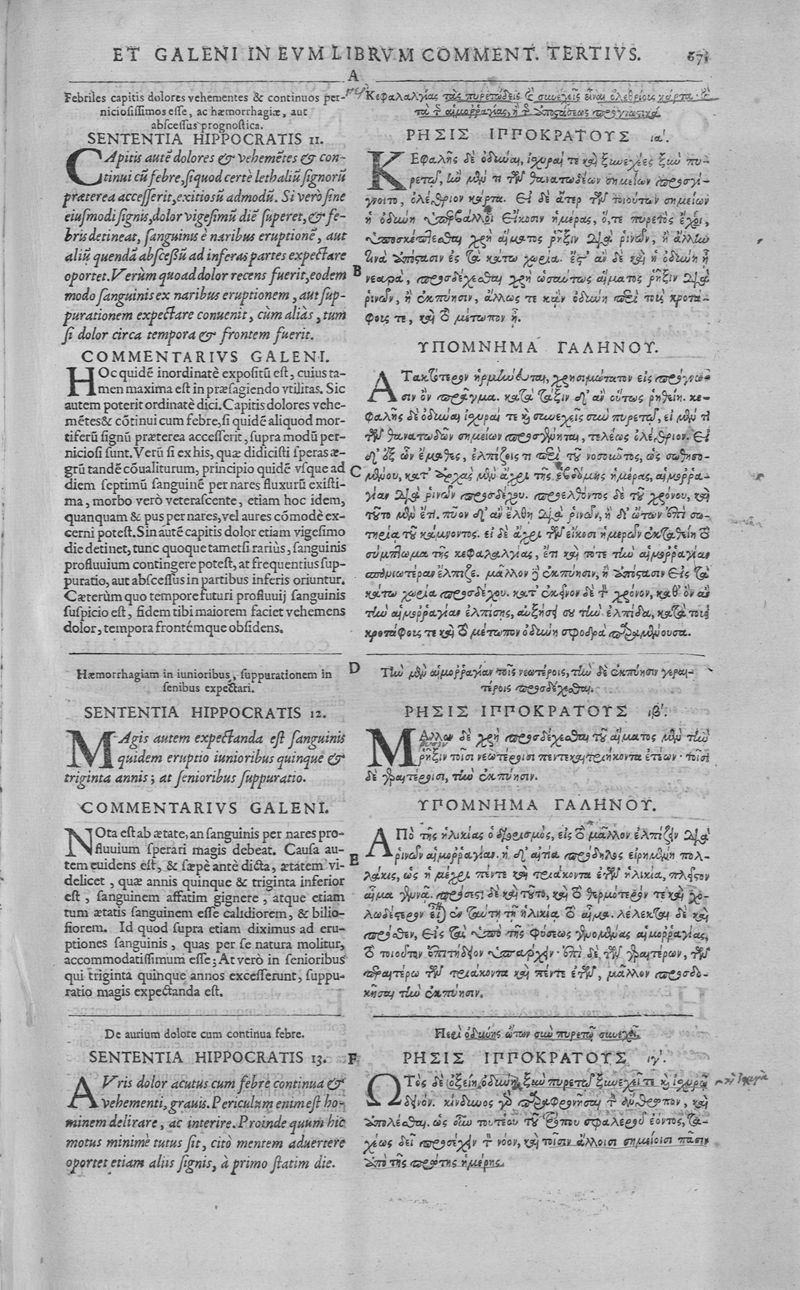 ET GALENI IN EVM LIBRVM COMMENT. TERTIVS. 671
A
Febriles capitis dolores vehementes & continuos per-
niciosissimos esse, ac hæmorrhagiæ, aut
abscessus prognostica.
SENTENTIA HIPPOCRATIS 11.
CApitis autẽ dolores & vehemẽtes & con-
tinui cũ febre, siquod certè lethaliũ signorũ
præterea accesserit, exitiosũ admodũ. Si verò sine
eiusmodi signis, dolor vigesimũ diẽ superet, & fe-
bris detineat, sanguinis è naribus eruptionẽ, aut
aliũ quendã abscessũ ad inferas partes expectare
oportet. Verùm quoad dolor recens fuerit, eodem
modo sanguinis ex naribus eruptionem, aut sup-
purationem expectare conuenit, cùm aliàs, tum
si dolor circa tempora & frontem fuerit.
COMMENTARIVS GALENI.
HOc quidẽ inordinatè expositũ est, cuius ta-
men maxima est in præsagiendo vtilitas. Sic
autem poterit ordinatè dici. Capitis dolores vehe-
mẽtes & cõtinui cum febre, si quidẽ aliquod mor-
tiferũ signũ præterea accesserit, supra modũ per-
niciosi sunt. Verũ si ex his, quæ didicisti speras æ-
grũ tandẽ cõualiturum, principio quidẽ vsque ad
diem septimũ sanguinẽ per nares fluxurũ existi-
ma, morbo verò veterascente, etiam hoc idem,
quanquam & pus per nares, vel aures cõmodè ex-
cerni potest. Sin autẽ capitis dolor etiam vigesimo
die detinet, tunc quoque tametsi rariùs, sanguinis
profluuium contingere potest, at frequentius sup-
puratio, aut abscessus in partibus inferis oriuntur.
Cæterùm quo tempore futuri profluuij sanguinis
suspicio est, fidem tibi maiorem faciet vehemens
dolor, tempora frontémque obsidens.
Hæmorrhagiam in iunioribus, suppurationem in
senibus expectari.
SENTENTIA HIPPOCRATIS 12.
MAgis autem expectanda est sanguinis
quidem eruptio iunioribus quinque &
triginta annis; at senioribus suppuratio.
COMMENTARIVS GALENI.
NOta est ab ætate, an sanguinis per nares pro-
fluuium sperari magis debeat. Causa au-
tem euidens est, & sæpè antè dicta, ætatem vi-
delicet, quæ annis quinque & triginta inferior
est, sanguinem affatim gignere, atque etiam
tum ætatis sanguinem esse calidiorem, & bilio-
siorem. Id quod supra etiam diximus ad eru-
ptiones sanguinis, quas per se natura molitur,
accommodatissimum esse; At verò in senioribus
qui triginta quinque annos excesserunt, suppu-
ratio magis expectanda est.
De aurium dolore cum continua febre.
SENTENTIA HIPPOCRATIS 13.
AVris dolor acutus cum febre continua &
vehementi, grauis. Periculum enim est ho-
minem delirare, ac interire. Proinde quum hic
motus minimè tutus sit, citò mentem aduertere
oportet etiam aliis signis, à primo statim die.
B
C
D
E
F
Κεφαλαλγίας τὰς πυρετώδεις καὶ συνεχεῖς εἶναι ὀλεθρίους κάρτα· καὶ
τὰ τῆς αἱμορραγίας, ἢ τῆς ἀποστάσεως προγνωστικά.
ΡΗΣΙΣ ΙΠΠΟΚΡΑΤΟΥΣ ια΄.
ΚΕφαλῆς δὲ ὀδύναι, ἰσχυραί τε καὶ ξυνεχέες ξὺν πυ-
ρετῷ, ἢν μὲν τι τῶν θανατωδέων σημείων προσγί-
γνοιτο, ὀλέθριον κάρτα. Εἰ δὲ ἄτερ τῶν τοιούτων σημείων
ἡ ὀδύνη ὑπερβάλλοι εἴκοσιν ἡμέρας, ὅ,τε πυρετὸς ἔχοι,
ὑποσκέπτεσθαι χρὴ αἵματος ῥῆξιν διὰ ῥινῶν, ἢ ἄλλην
τινὰ ἀπόστασιν ἐς τὰ κάτω χωρία. ἔςτ᾽ ἂν δὲ καὶ ἡ ὀδύνη ᾖ
νεαρὰ, προσδέχεσθαι χρὴ ὡσαύτως αἵματος ῥῆξιν διὰ
ῥινῶν, ἢ ἐκπύησιν, ἄλλως τε κᾂν ὀδύνη περὶ τοὺς κροτά-
φους τε, καὶ τὸ μέτωπον ᾖ.
ΥΠΟΜΝΗΜΑ ΓΑΛΗΝΟΥ.
ΑΤακτότερον ἡρμήνευται, χρησιμώτατον εἰς πρόγνω-
σιν ὂν πρᾶγμα. κατὰ τάξιν δ᾽ ἂν οὕτως ῥηθείη. κε-
φαλῆς δὲ ὀδύναι, ἰσχυραί τε καὶ συνεχεῖς σὺν πυρετῷ, εἰ μὲν τι
τῶν θανατωδῶν σημείων προσγένηται, τελέως ὀλέθριον. Εἰ
δ᾽ ἐξ ὧν ἔμαθες, ἐλπίζοις τι περὶ τοῦ νοσοῦντος, ὡς σωθησο-
μένου, κατ᾽ ἀρχὰς μὲν ἄχρι τῆς ἑβδόμης ἡμέρας, αἱμορρα-
γίαν διὰ ῥινῶν προσδέχου. προελθόντος δὲ τοῦ χρόνου, καὶ
τοῦτο μὲν ἔτι. πῦον δ᾽ ἂν ἔλθῃ διὰ ῥινῶν, ἢ δι᾽ ὤτων ἐπὶ σω-
τηρίᾳ τοῦ κάμνοντος. εἰ δὲ ἄχρι τῶν εἴκοσι ἡμερῶν ἐκταθείη τὸ
σύμπτωμα τῆς κεφαλαλγίας, ἔτι καὶ τότε τὴν αἱμορραγίαν
σπανιωτέραν ἔλπιζε. μᾶλλον δὲ ἐκπύησιν, ἢ ἀπόστασιν εἰς τὰ
κάτω χωρία προσδέχου. κατ᾽ ἐκεῖνον δὲ τὸν χρόνον, καθ᾽ ὃν ἂν
τὴν αἱμορραγίαν ἐλπίσῃς, αὐξήσει σου τὴν ἐλπίδα, κατὰ τοὺς
κροτάφους τε καὶ τὸ μέτωπον ὀδύνη σφοδρὰ γενομένη.
Τὴν μὲν αἱμορραγίαν τοῖς νεωτέροις, τὴν δὲ ἐκπύησιν γεραι-
τέροις προσδέχεσθαι.
ΡΗΣΙΣ ΙΠΠΟΚΡΑΤΟΥΣ ιβ΄.
ΜΑλλον δὲ χρὴ προσδέχεσθαι τοῦ αἵματος μὲν τὴν
ῥῆξιν τοῖσι νεωτέροισι πεντεκαιτριήκοντα ἐτέων· τοῖσι
δὲ γεραιτέροισι, τὴν ἐκπύησιν.
ΥΠΟΜΝΗΜΑ ΓΑΛΗΝΟΥ.
ΑΠὸ τῆς ἡλικίας ὁ διορισμὸς, εἰς τὸ μᾶλλον ἐλπίζειν διὰ
ῥινῶν αἱμορραγίαν. ἡ δ᾽ αἰτία πρόδηλος εἰρημένη πολ-
λάκις, ὡς ἡ μέχρι πέντε καὶ τριάκοντα ἐτῶν ἡλικία, πλεῖστον
αἷμα γεννᾷ. πρόσεστι δὲ καὶ τοῦτο, καὶ τὸ θερμότερόν τε καὶ χο-
λωδέστερον εἶναι ἐν ταύτῃ τῇ ἡλικίᾳ τὸ αἷμα. λέλεκται δὲ καὶ
πρόσθεν, εἰς τὰς ὑπὸ τῆς φύσεως γινομένας αἱμορραγίας,
τὸ τοιοῦτον ἐπιτήδειον ὑπάρχειν· ἐπὶ δὲ τῶν γεραιτέρων, τῶν
περαιτέρω τῶν τριάκοντα καὶ πέντε ἐτῶν, μᾶλλον προσδο-
κήσῃς τὴν ἐκπύησιν.
Περὶ ὀδύνης ὤτων σὺν πυρετῷ συνεχεῖ.
ΡΗΣΙΣ ΙΠΠΟΚΡΑΤΟΥΣ ιγ΄.
ΩΤὸς δὲ ὀξείη ὀδύνη, ξὺν πυρετῷ ξυνεχεῖ τε καὶ ἰσχυρῷ
δεινόν. κίνδυνος γὰρ παραφρονῆσαι τὸν ἄνθρωπον, καὶ
ἀπολέσθαι. ὡς οὖν τουτέου τοῦ τρόπου σφαλεροῦ ἐόντος, τα-
χέως δεῖ προσέχειν τὸν νόον, καὶ τοῖσιν ἄλλοισι σημείοισι πᾶσιν
ἀπὸ τῆς πρώτης ἡμέρης.